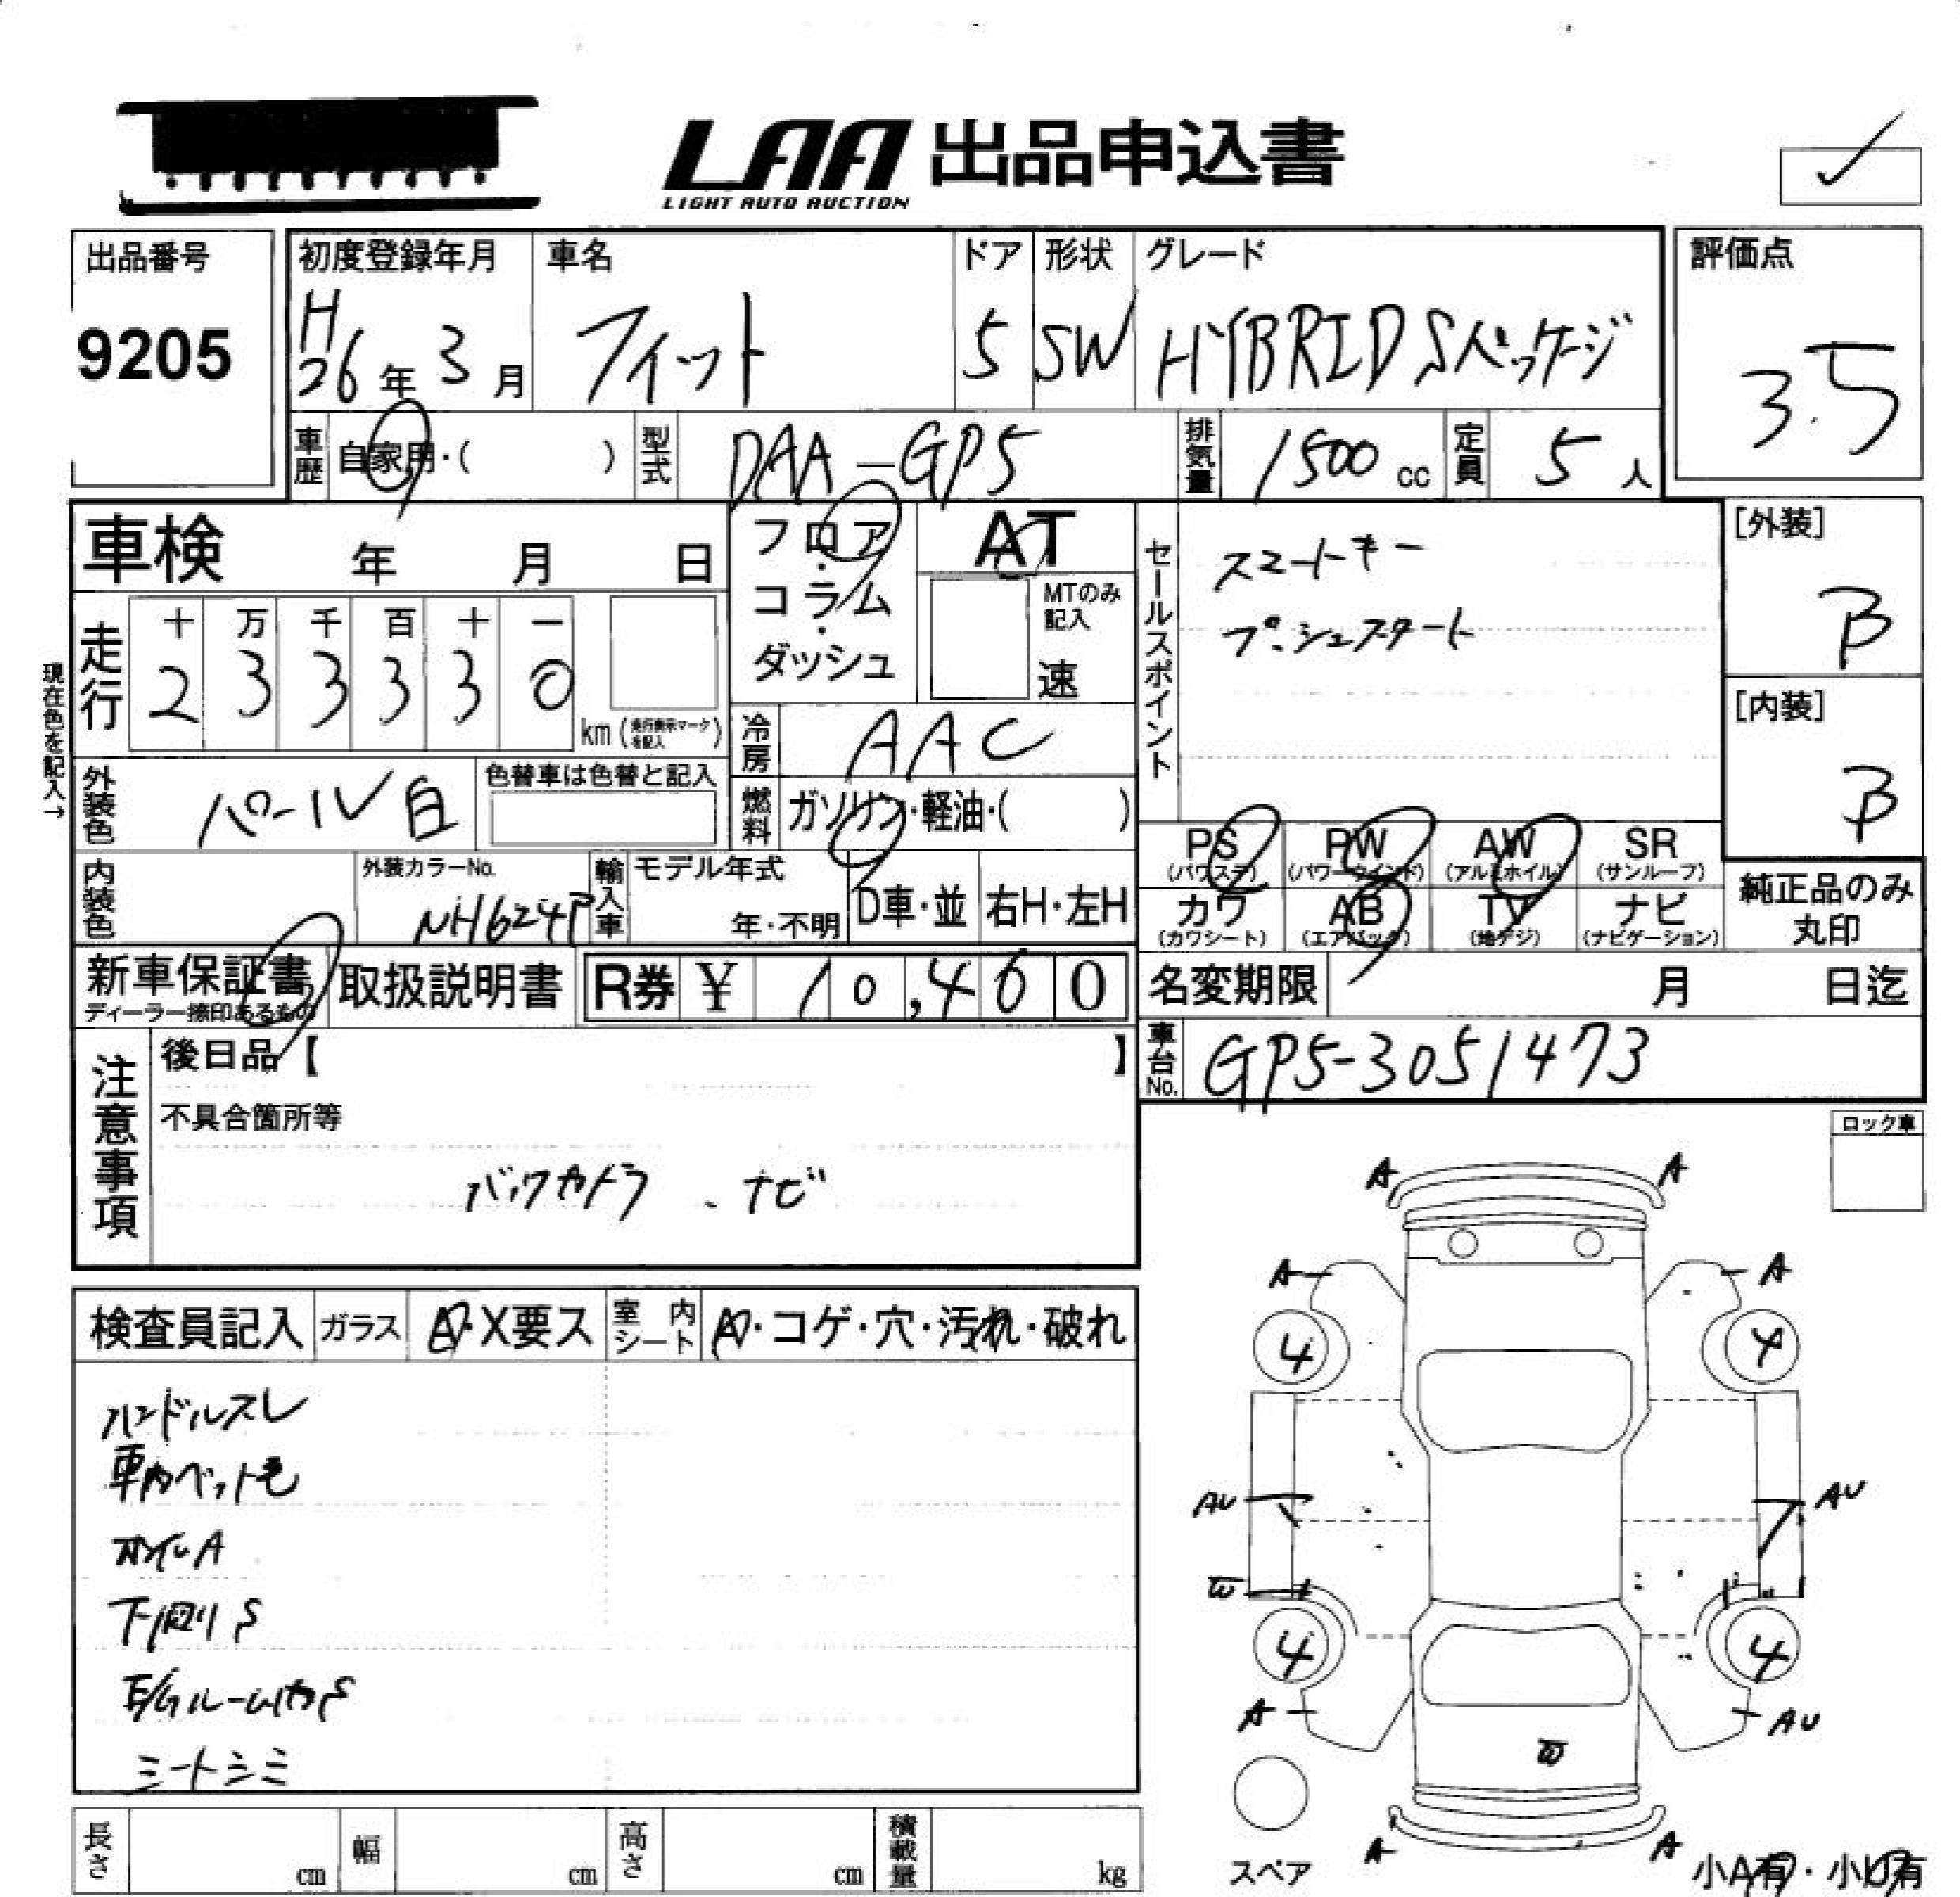 LAA 出品申込書
LIGHT AUTO AUCTION
出品番号
9205
初度登録年月
H26年3月
車名
フィット
ドア
5
形状
SW
グレード
HYBRID Sパッケージ
評価点
3.5
車歴
自家用・( )
型式
DAA-GP5
排気量
1500cc
定員
5人
車検 年 月 日
フロア・コラム・ダッシュ
AT
MTのみ記入
速
セールスポイント
スマートキー
プッシュスタート
[外装]
B
[内装]
B
現在色を記入→
走行
十 万 千 百 十 一
2 3 3 3 3 0
km (走行表示マークを記入)
冷房
AAC
外装色
パール白
色替車は色替と記入
燃料
ガソリン・軽油・( )
PS (パワステ)
PW (パワーウインド)
AW (アルミホイル)
SR (サンルーフ)
カワ (カワシート)
AB (エアバック)
TV (地デジ)
ナビ (ナビゲーション)
純正品のみ丸印
内装色
外装カラーNo.
NH624P
輸入車
モデル年式
年・不明
D車・並
右H・左H
新車保証書
ディーラー捺印あるもの
取扱説明書
R券 ¥ 10,460
名変期限 月 日迄
車台No.
GP5-3051473
注意事項
後日品【 】
不具合箇所等
バックカメラ 、ナビ
ロック車
検査員記入
ガラス
A・X要ス
室内シート
A・コゲ・穴・汚れ・破れ
ハンドルスレ
車内ペット毛
ホイルA
下廻りS
E/GルームカラS
シートシミ
A A
A A
4 4
AU AU
W
4 4
A AU
W
A A
スペア
小A有・小U有
長さ cm
幅 cm
高さ cm
積載量 kg